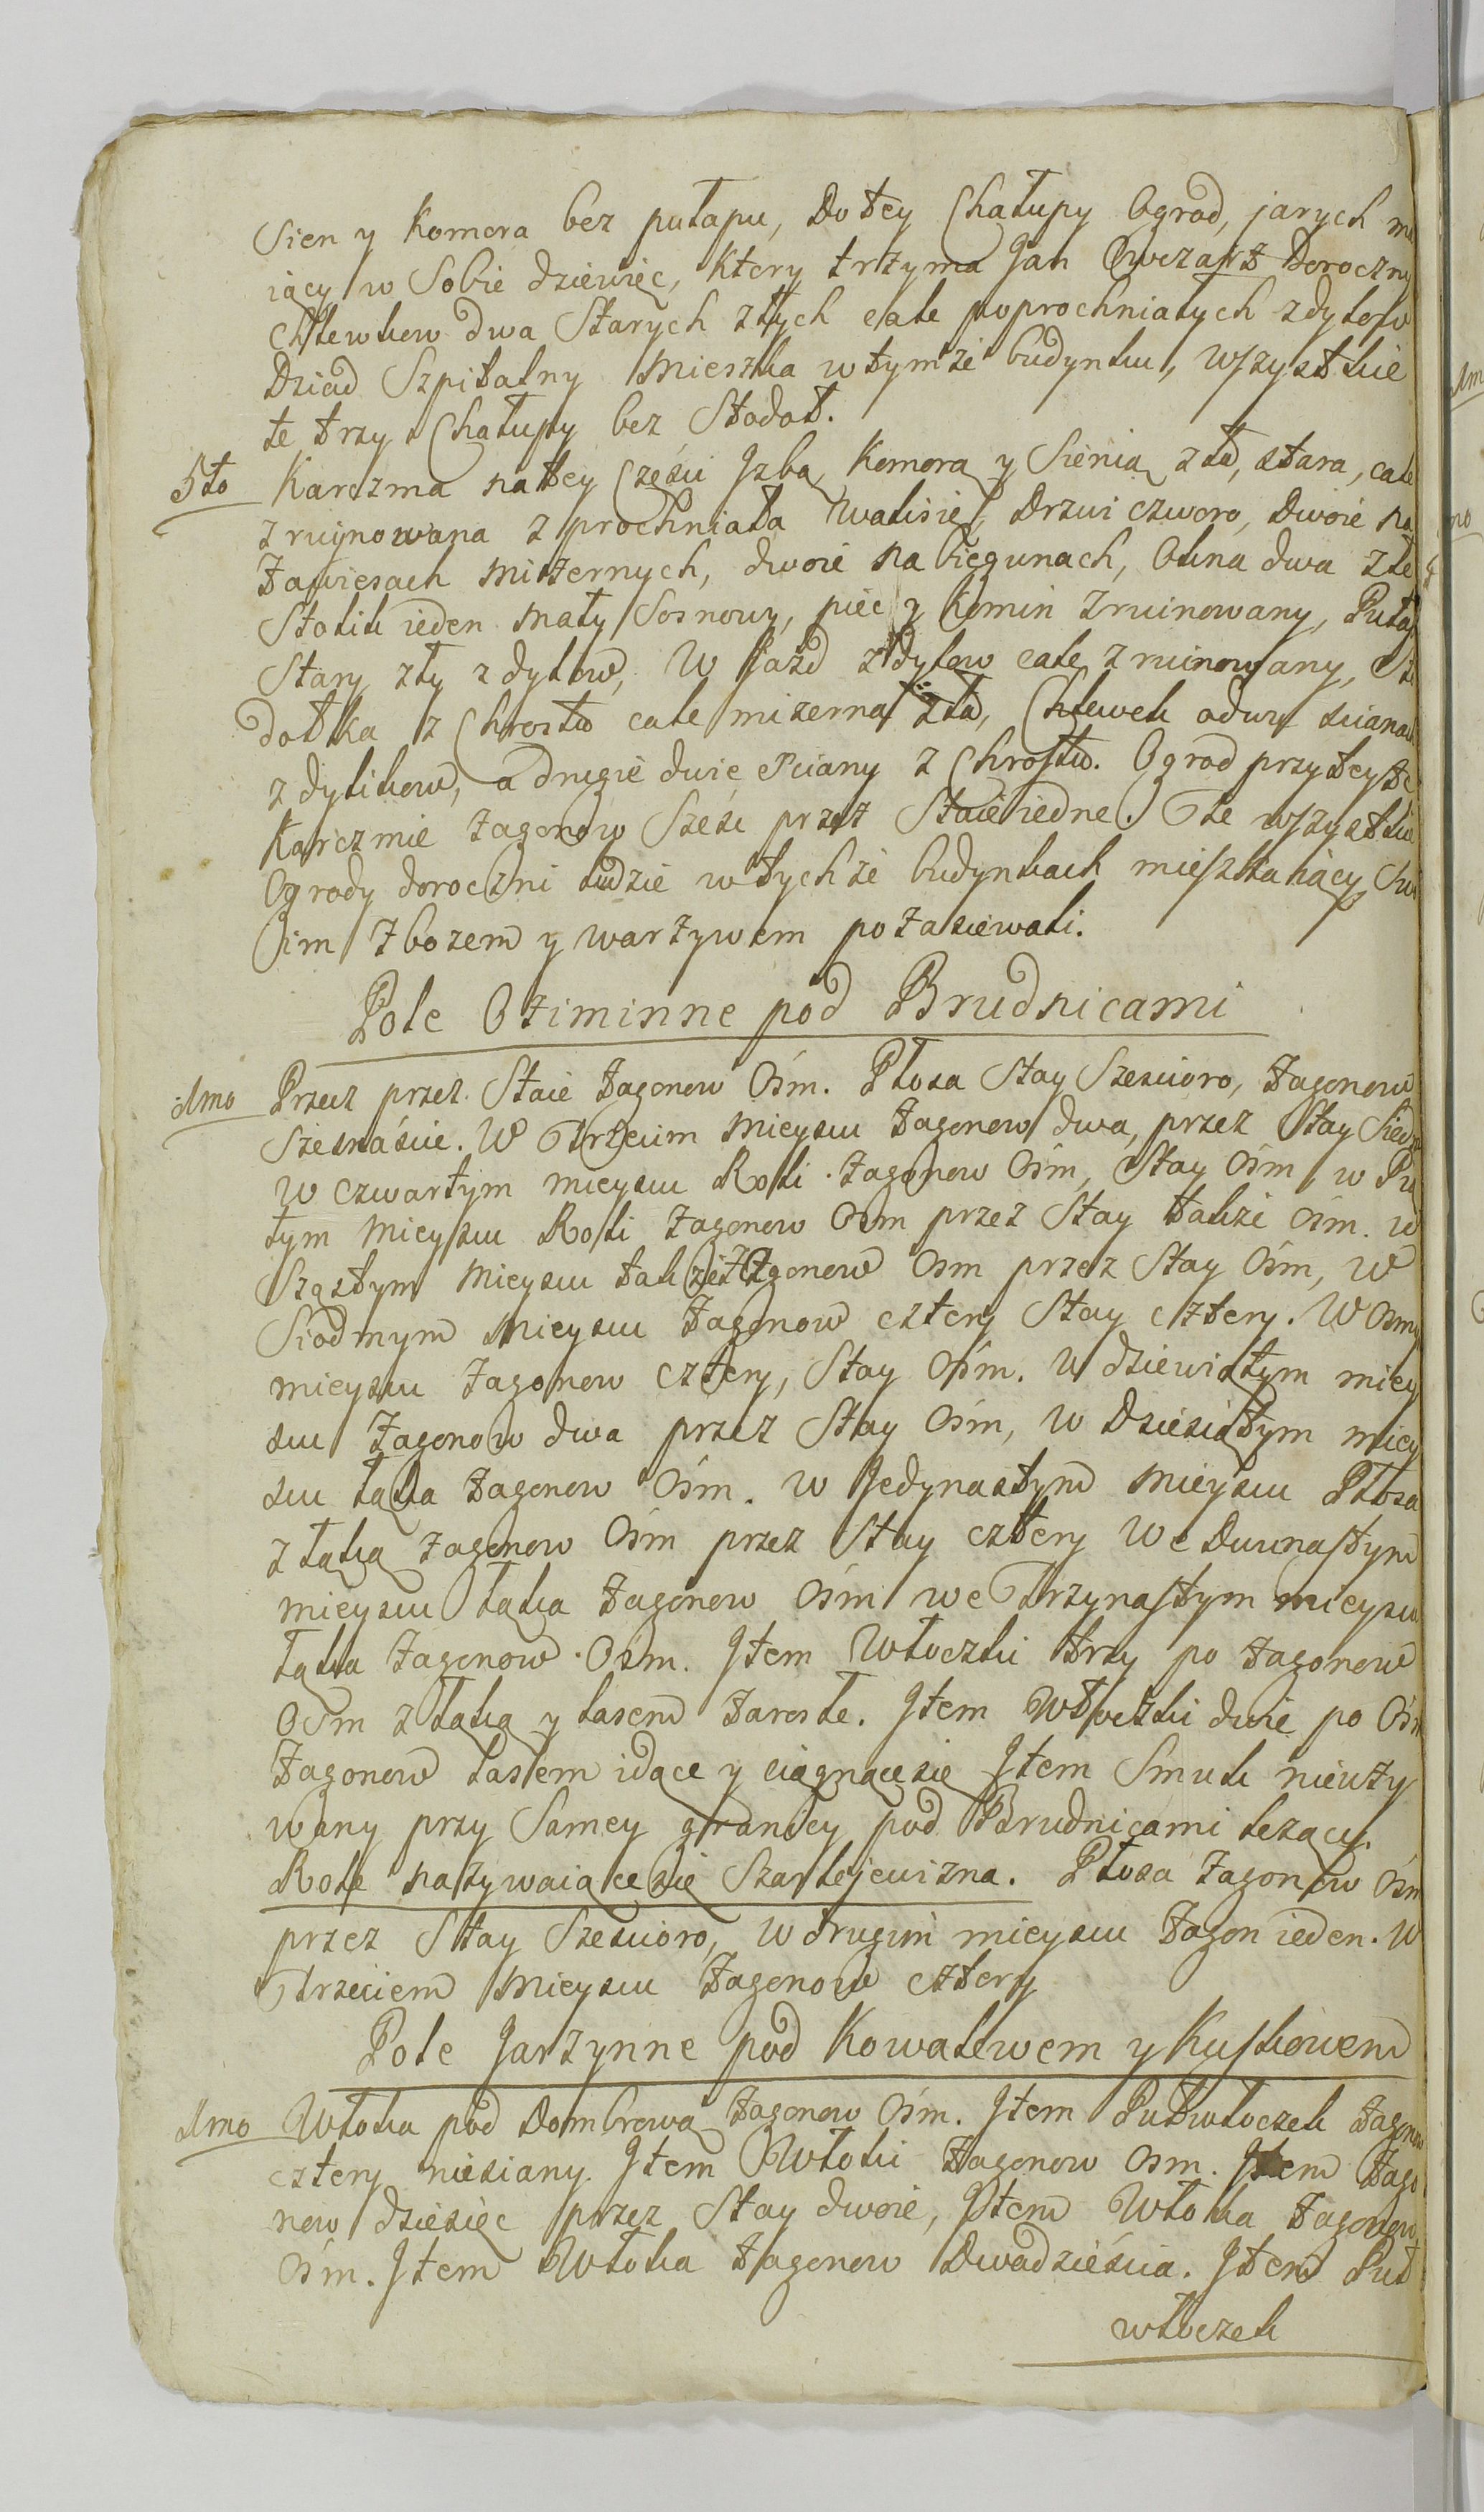 Sien y Komora bez pułapu, Do tey Chałupy Ogrod, jarych ma
iący w Sobie dziewięc, Ktory trzyma Jan Owczarz Doroczny
Chlewkow dwa Starych złych cale poprochniałych zdylow
Dziad Szpitalny Mieszka w tymże budynku, wszystkie
te trzy Chałupy bez Stodoł.
5to Karczma na tey Częsci Jzba, Komora y Sienia, zła, stara, cale
zruynowana zprochniała Walisię, Drzwi czworo, Dwoie na
Zawiesach mizernych, dwoie na biegunach, Okna dwa złe
Stolik ieden mały Sosnowy, piec y Komin Zruinowany, Puła
Stary zły z dylow, W jazd z dylow cale zruinowany, Sto
dołka z Chrostu cale mizerna zła, Chlewek odwu scianach
z dylikow, a drugie dwie sciany z Chrostu. Ogrod przy teyże
Karczmie Zagonow Szesc przez Staie iedne. Te wszystkie
Ogrody doroczni ludzie w tychże budynkach mieszkaiący Swo
im Zbozem y warzywem pozasiewali.
Pole Oziminne pod Brudnicami
1mo Przecz przez Staie Zagonow Ośm. Płosa Stay Szescioro, Zagonow
Szesnaście. W Trzecim Mieyscu Zagonow dwa, przez Stay Siedm
w czwartym mieyscu Roli Zagonow Ośm, Stay Ośm, w Pią
tym Mieyscu Roli Zagonow Osm przez Stay także ośm. w
Szostym Mieyscu także Zagonow Osm przez Stay Ośm, W
Siodmym Mieyscu Zagonow cztery Stay cztery. W Osmy
mieyscu Zagonow cztery, Stay Ośm. W dziewiątym miey
scu Zagonow dwa przez Stay Ośm, w Dziesiątym miey
scu łąka Zagonow Ośm. w Jedynastym Mieyscu Płosa
z łąką Zagonow Ośm przez Stay cztery We Dwunastym
mieyscu łąka Zagonow Ośm we Trzynastym mieyscu
łąka Zagonow Osm. Jtem Włoczki trzy po Zagonow
Osm z łąką y lasem Zarosłe. Jtem Włoczki dwie po Ośm
Zagonow lasem idące y ciągnącesię Jtem Smuk nieuży
wany przy Samey granicy pod Brudnicami lezący.
Role nazywaiącesię Szarlejewizna. Płosa Zagonow Osm
przez Stay Szescioro, w drugim mieyscu Zagon ieden. W
Trzeciem Mieyscu Zagonow cztery
Pole Jarzynne pod Kowalewem y Kuskowem
1mo Włoka pod Dombrową Zagonow Ośm. Jtem Pułwłoczek Zagonow
cztery niesiany. Jtem Włoki Zagonow Osm. Jtem Zago
now dziesięc przez Stay dwoie, Jtem Włoka Zagonow
Ośm. Jtem Włoka Zagonow Dwadzieścia. Jtem Puł
włoczek